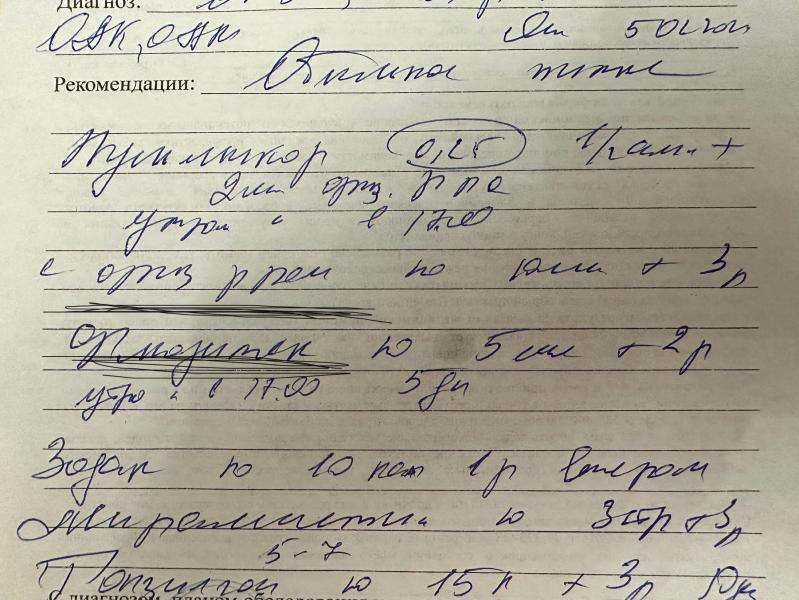 Диагноз:
ОАК, ОАМ
Рекомендации: Обильное питье
Пульмикор 0,25 1/2 амп +
2мл физ. р ра
утром и в 17.00
с физ р ром по мл + 3 р
по 5 мл + 2 р
утро и в 17.00 5 дн
Зодак по 10 кап 1 р вечером
Мирамистин по 3 стр + 3 р
5-7
Тонзилгон по 15 к + 3 р
С диагнозом, планом обследования